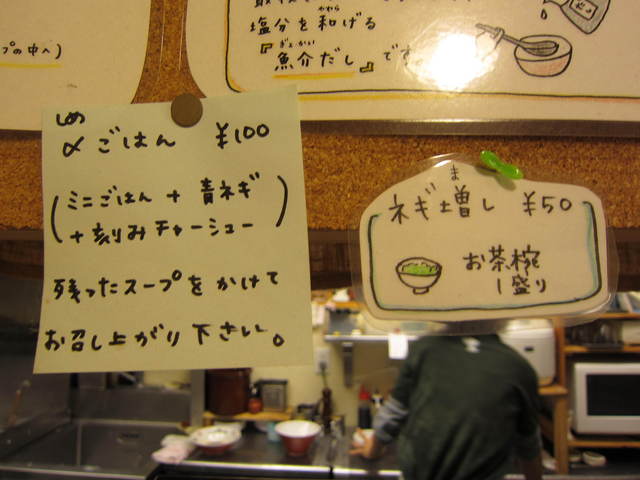 プの中へ)
塩分を和げる
やわら
ぎょかい
『魚介だし』です
しめ
〆ごはん ¥100
(ミニごはん + 青ネギ
+ 刻みチャーシュー)
残ったスープをかけて
お召し上がり下さい。
ま
ネギ増し ¥50
お茶椀
し盛り